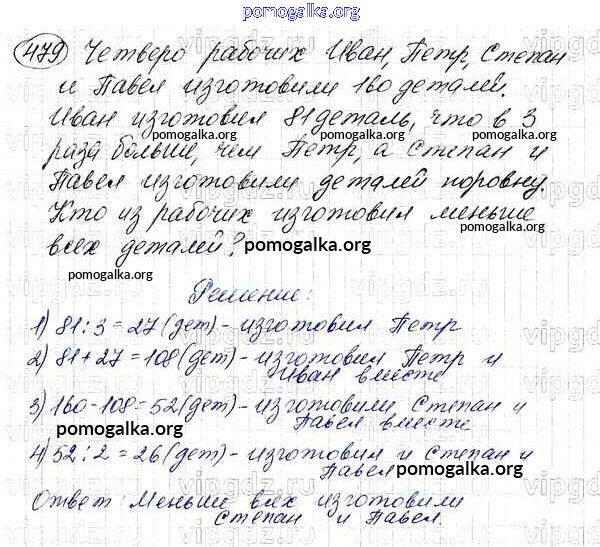 pomogalka.org
479 Четверо рабочих Иван, Петр, Степан
и Павел изготовили 160 деталей.
Иван изготовил 81 деталь, что в 3
pomogalka.org pomogalka.org
раза больше, чем Петр, а Степан и
pomogalka.org
Павел изготовили деталей поровну.
Кто из рабочих изготовил меньше
всех деталей? pomogalka.org
pomogalka.org
Решение:
1) 81:3=27(дет)-изготовил Петр
pomogalka.org
2) 81+27=108(дет)-изготовил Петр и
Иван вместе
3) 160-108=52(дет)-изготовили Степан и
Павел вместе
pomogalka.org
4) 52:2=26(дет)-изготовили и Степан и
Павел pomogalka.org
Ответ: Меньше всех изготовили
Степан и Павел.